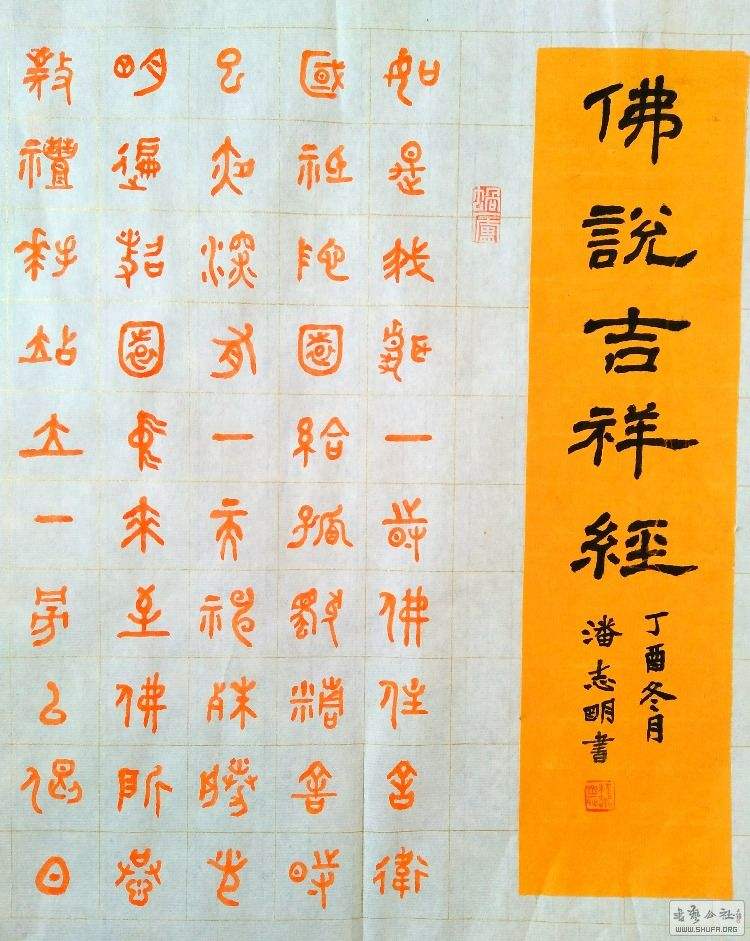 佛說吉祥經
丁酉冬月
潘志明書
如是我聞一時佛住舍衛
國祇陀園給孤獨精舍時
已夜深有一天神殊勝光
明遍照園來至佛所恭
敬禮拜站立一旁以偈白
書藝公社
WWW.SHUFA.ORG